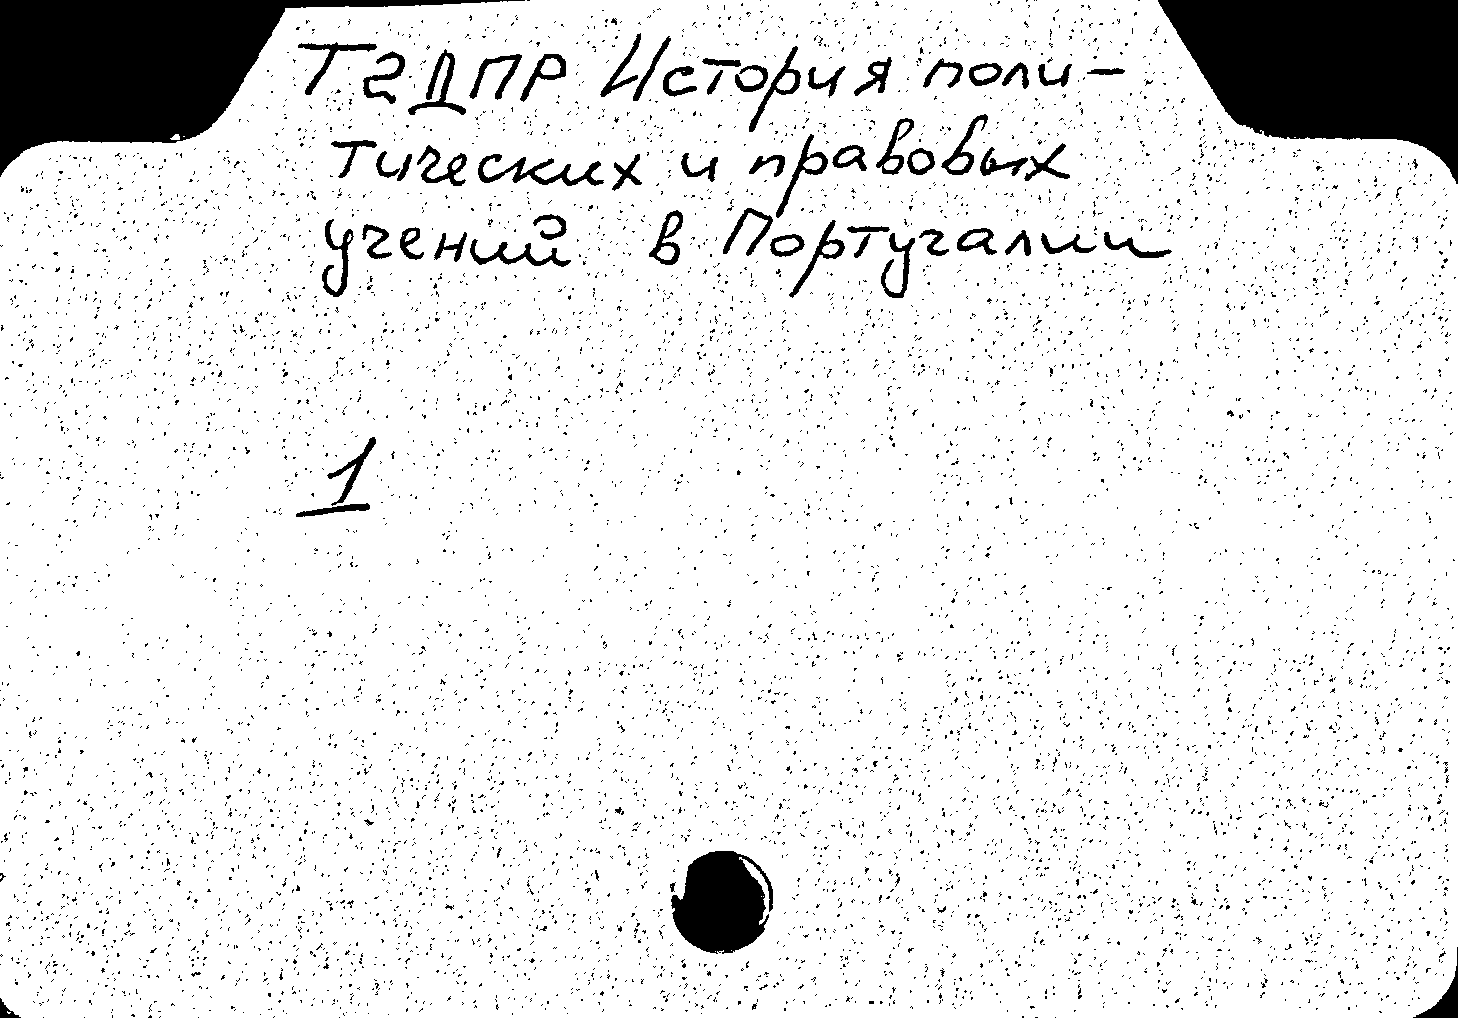 Т2ДПР История поли-
тических и правовых
учений в Португалии
1